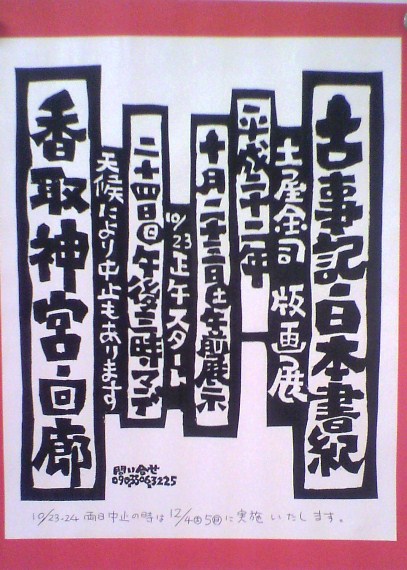 古事記・日本書紀
土屋金司 版画展
平成二十二年
十月二十三日(土)午前展示
10/23正午スタート
二十四日(日)午後三時マデ
天候により中止もあります
香取神宮・回廊
問い合せ
09033063225
10/23-24 両日中止の時は 12/4(土)5(日)に実施いたします。